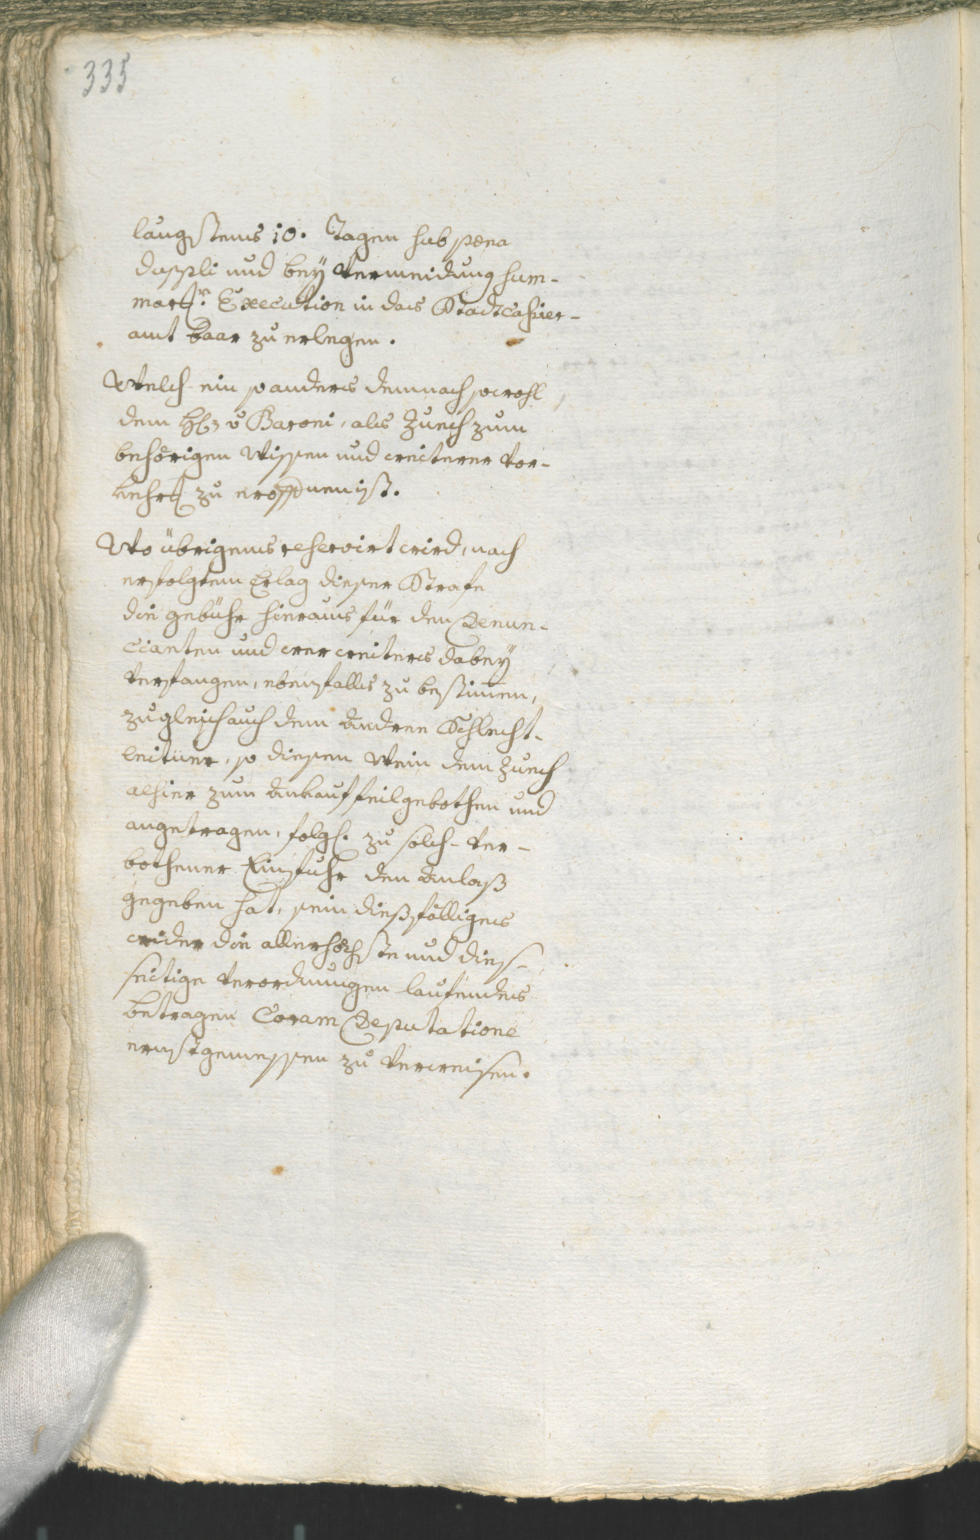 335
längstens 10. Tagen sub pœna
duppli und bey Vermeidung sum-
mariſr. Execution in das Stadtcaßier-
amt baar zu erlegen.
Welch-ein so anders demnach sowohl
dem v Baroni, als Zuech zum
behörigen Wissen und weiterer Vor-
kehr zu eröffnen ist.
Wo übrigens reservirt wird, nach
erfolgtem Erlag dieser Strafe
die gebühr hieraus für den Denun-
cianten und wer weiters dabey
Verfangen, ebenfalls zu bestimen,
zugleich auch dem Andree Schlecht-
leitner, so diesen Wein dem Zuech
alhier zum Ankauf feilgebothen und
angetragen, folgs. zu solch-Ver-
bothener Einfuhr den Anlaß
gegeben hat, sein dießfälliges
wider die allerhöchste und dies-
seitige Verordnungen laufendes
Betragen Coram Deputatione
ernstgemessen zu Verweisen.